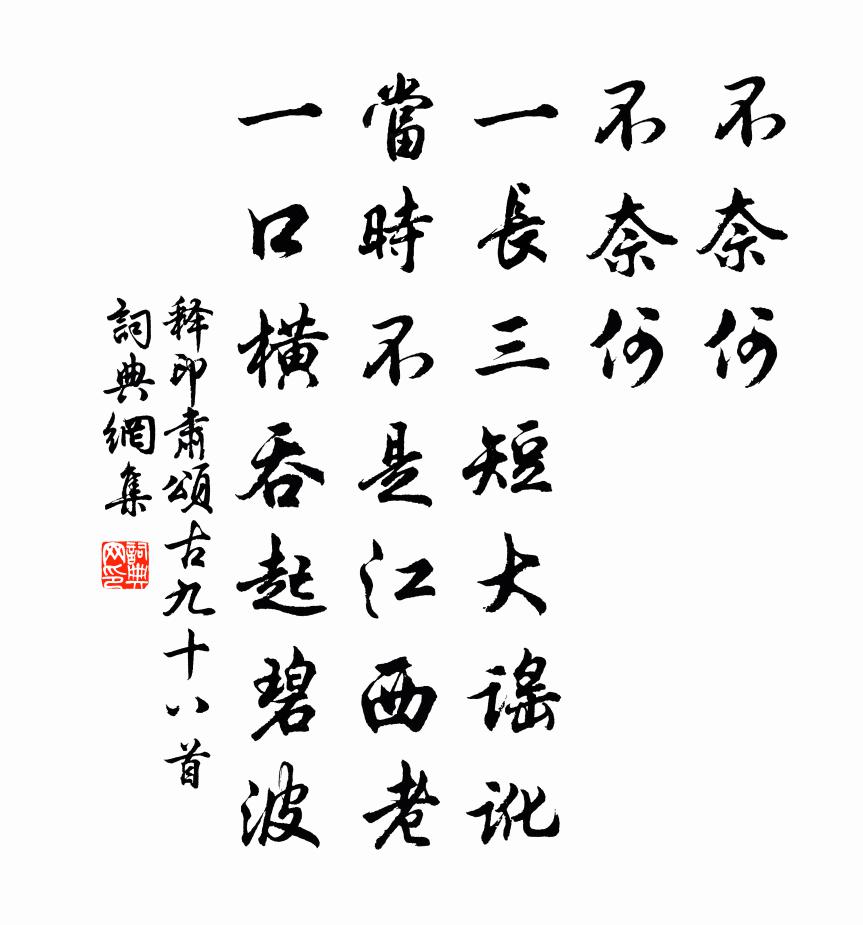 不奈何
不奈何
一長三短大謠訛
當時不是江西老
一口橫吞起碧波
释印肃頌古九十八首
詞典網集
詞典
网印